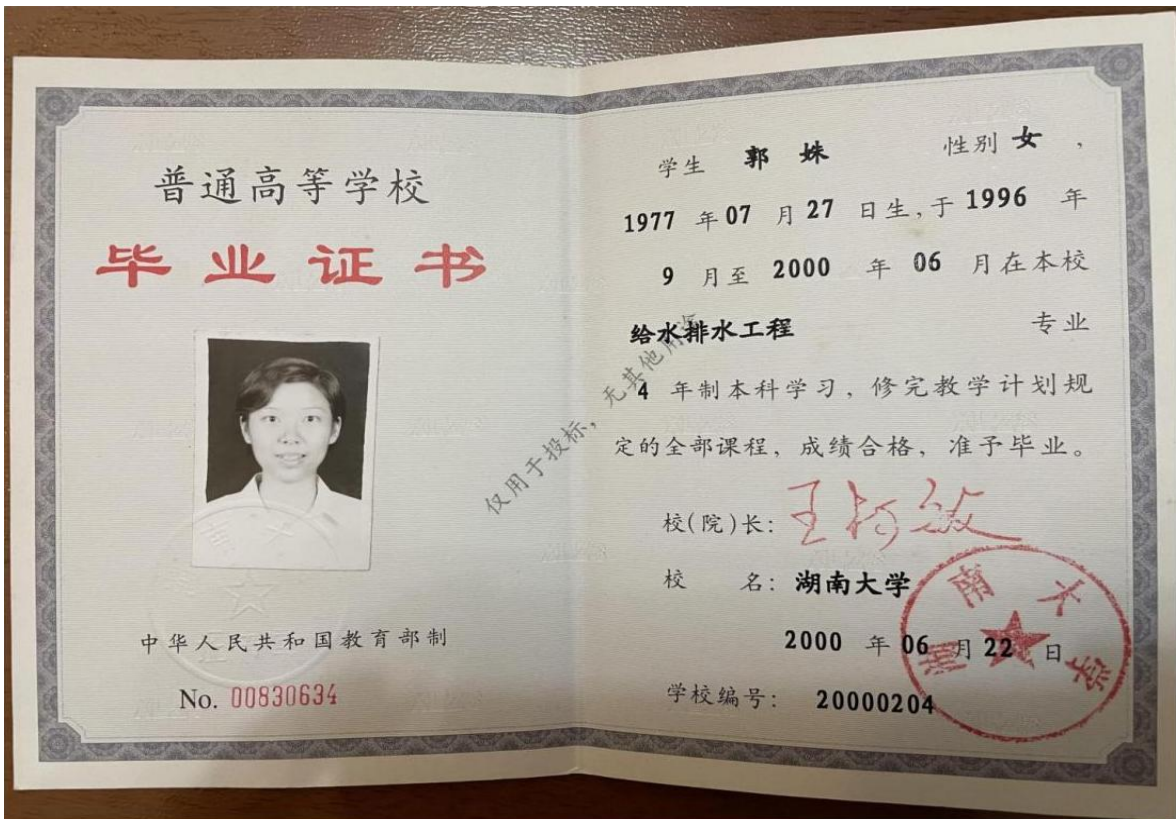 普通高等学校
毕业证书
中华人民共和国教育部制
No. 00830634
学生 郭姝 性别 女，
1977 年 07 月 27 日生,于 1996 年
9 月至 2000 年 06 月在本校
给水排水工程 专业
4 年制本科学习，修完教学计划规
定的全部课程，成绩合格，准予毕业。
校(院)长: 王柯敏
校 名: 湖南大学
2000 年 06 月 22 日
学校编号: 20000204
湖南大学
仅用于投标，无其他用途